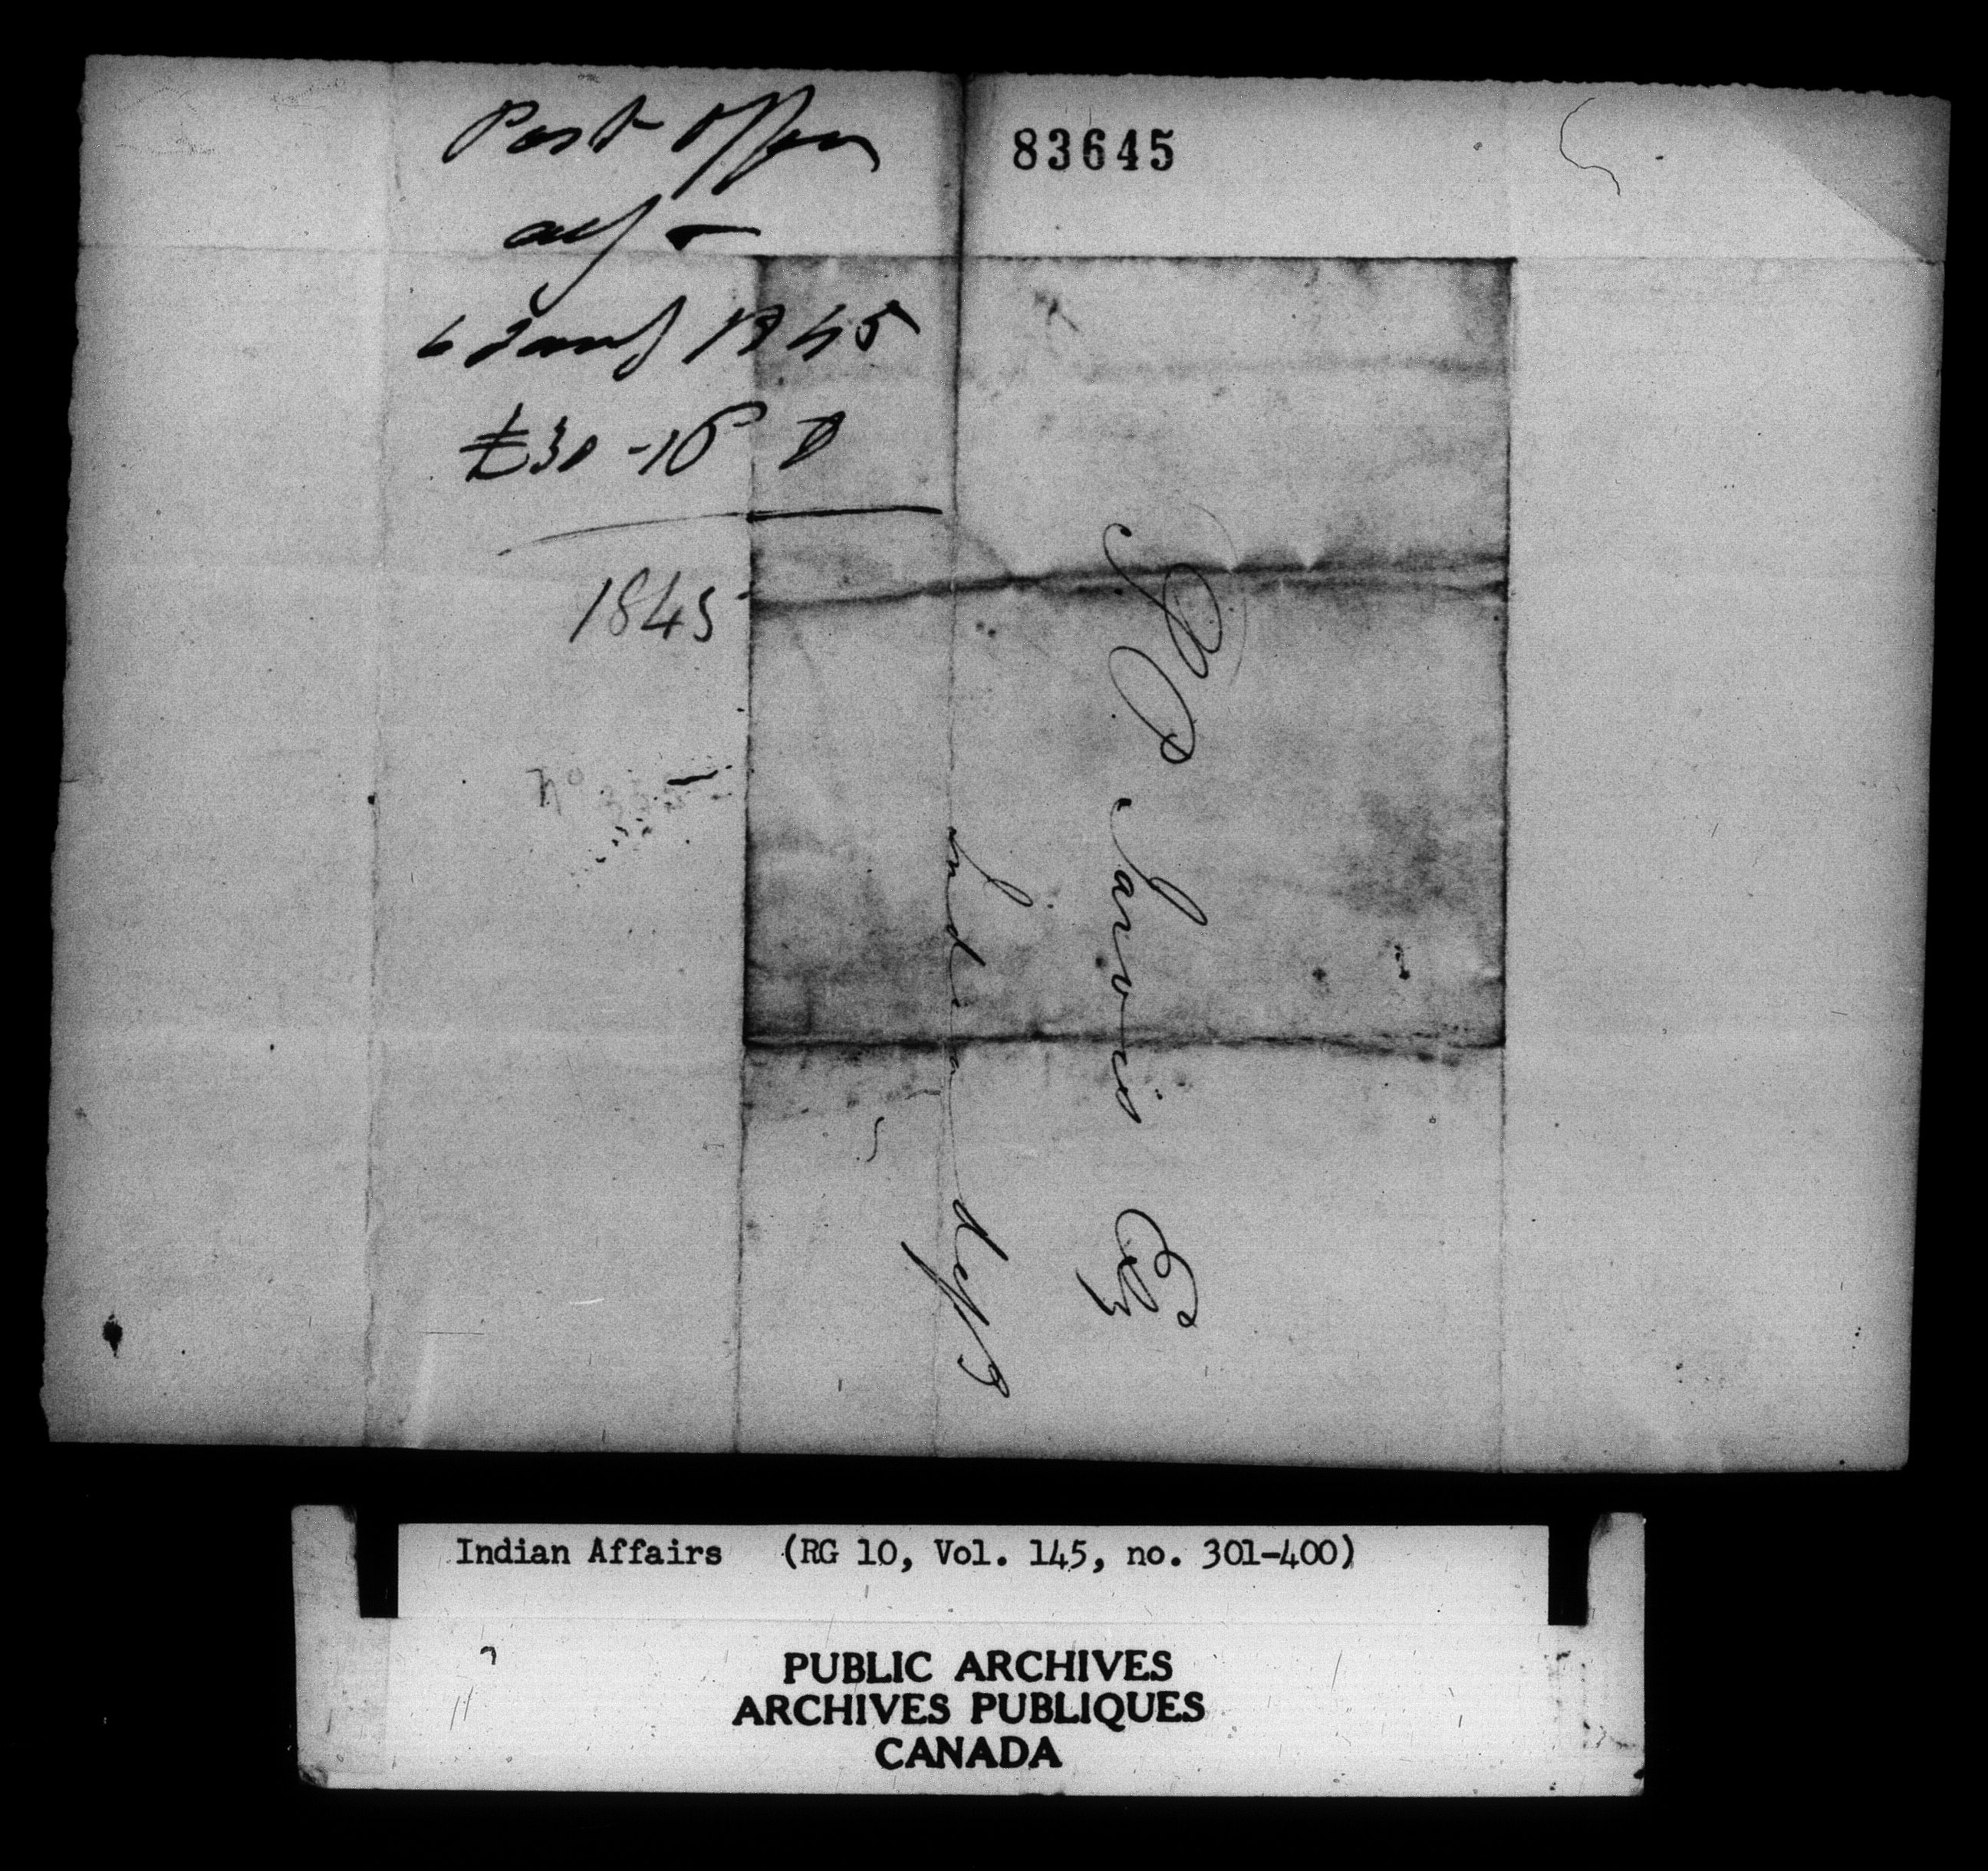 Post Office
83645
acct
6 Jany 1845
£30-16
1845
No
S P Jarvis Esq
Indian Dept
Indian Affairs (RG 10, Vol. 145, no. 301-400)
PUBLIC ARCHIVES
ARCHIVES PUBLIQUES
CANADA